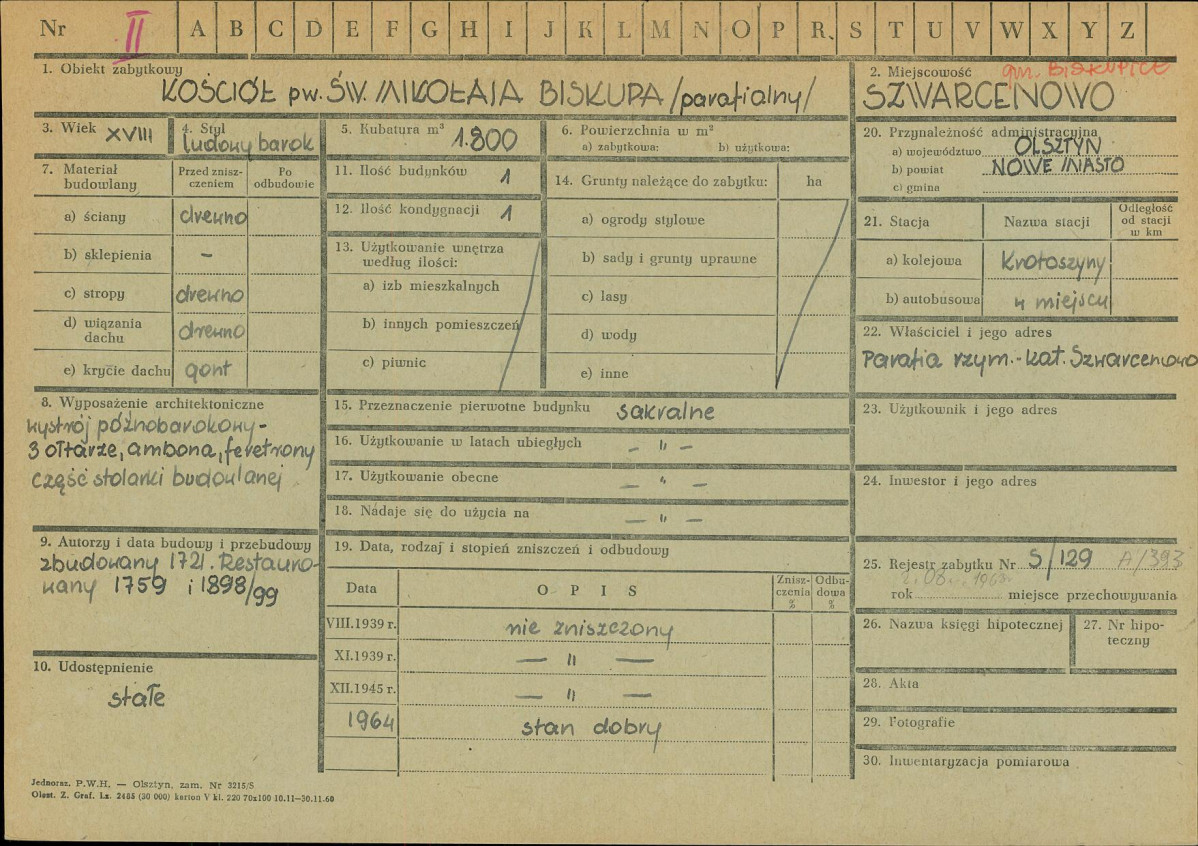 Nr II A B C D E F G H I J K L M N O P R S T U V W X Y Z
1. Obiekt zabytkowy
KOŚCIÓŁ pw. ŚW. MIKOŁAJA BISKUPA /parafialny/
2. Miejscowość gm. BISKUPICE
SZWARCENOWO
3. Wiek XVIII
4. Styl
ludowy barok
5. Kubatura m³ 1.800
6. Powierzchnia w m²
a) zabytkowa: b) użytkowa:
7. Materiał budowlany
Przed znisz-
czeniem
Po
odbudowie
a) ściany drewno
b) sklepienia –
c) stropy drewno
d) wiązania
dachu drewno
e) krycie dachu gont
8. Wyposażenie architektoniczne
wystrój późnobarokowy -
3 ołtarze, ambona, feretrony
część stolarki budowlanej
9. Autorzy i data budowy i przebudowy
zbudowany 1721. Restauro-
wany 1759 i 1898/99
10. Udostępnienie
stałe
11. Ilość budynków 1
12. Ilość kondygnacji 1
13. Użytkowanie wnętrza
według ilości:
a) izb mieszkalnych
b) innych pomieszczeń
c) piwnic
14. Grunty należące do zabytku: ha
a) ogrody stylowe
b) sady i grunty uprawne
c) lasy
d) wody
e) inne
15. Przeznaczenie pierwotne budynku sakralne
16. Użytkowanie w latach ubiegłych – " –
17. Użytkowanie obecne – " –
18. Nadaje się do użycia na – " –
19. Data, rodzaj i stopień zniszczeń i odbudowy
Data O P I S
Znisz-
czenia
%
Odbu-
dowa
%
VIII.1939 r. nie zniszczony
XI.1939 r. — " —
XII.1945 r. — " —
1964 stan dobry
20. Przynależność administracyjna
a) województwo OLSZTYN
b) powiat NOWE MIASTO
c) gmina
21. Stacja Nazwa stacji
Odległość
od stacji
w km
a) kolejowa Krotoszyny
b) autobusowa w miejscu
22. Właściciel i jego adres
Parafia rzym.-kat. Szwarcenowo
23. Użytkownik i jego adres
24. Inwestor i jego adres
25. Rejestr zabytku Nr S/129 A/393
rok miejsce przechowywania
26. Nazwa księgi hipotecznej
27. Nr hipo-
teczny
28. Akta
29. Fotografie
30. Inwentaryzacja pomiarowa
Jednoraz. P.W.H. — Olsztyn, zam. Nr 3215/S
Olszt. Z. Graf. Lz. 2485 (30 000) karton V kl. 220 70x100 10.11—30.11.60